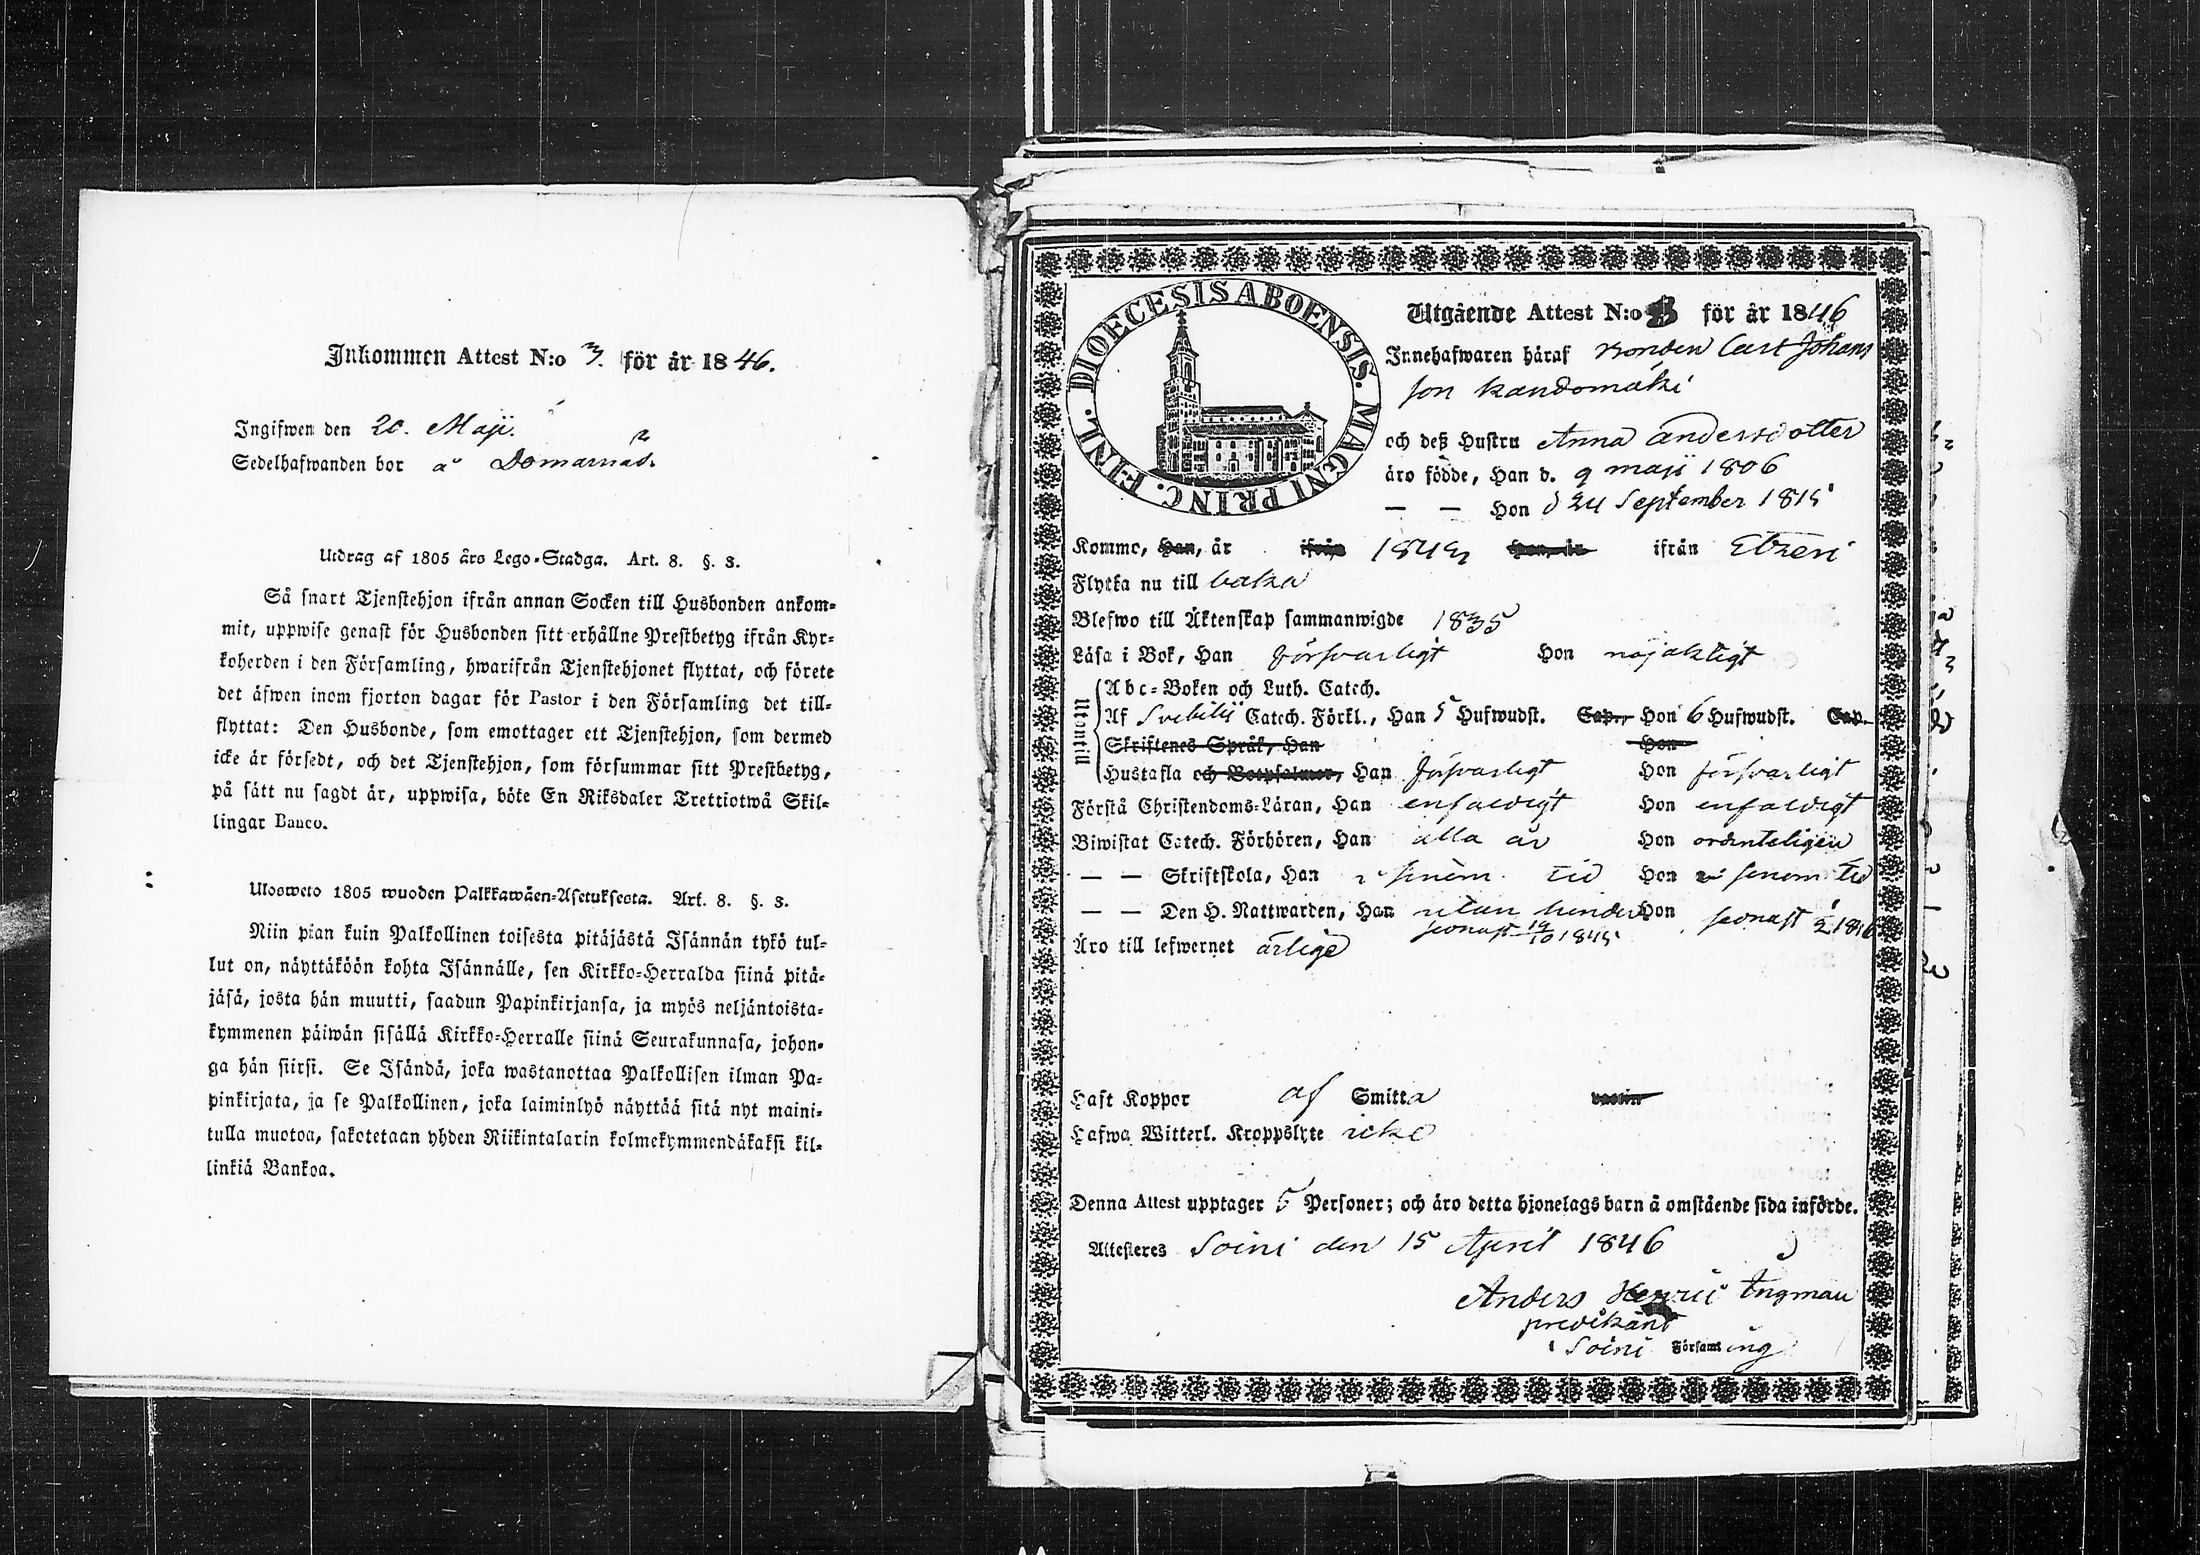 Inkommen Attest N:o 3. för år 1846.
Ingifwen den 20. Maji.
Sedelhafwanden bor å Domarnäs.
Utdrag af 1805 års Lego-Stadga. Art. 8. §. 3.
Så snart Tjenstehjon ifrån annan Socken till Husbonden ankom-
mit, uppwise genast för Husbonden sitt erhållne Prestbetyg ifrån Kyr-
koherden i den Församling, hwarifrån Tjenstehjonet flyttat, och förete
det äfwen inom fjorton dagar för Pastor i den Församling det till-
flyttat: Den Husbonde, som emottager ett Tjenstehjon, som dermed
icke är försedt, och det Tjenstehjon, som försummar sitt Prestbetyg,
på sätt nu sagdt är, uppwisa, böte En Riksdaler Trettiotwå Skil-
lingar Banco.
Ulosweto 1805 wuoden Palkkawäen-Asetuksesta. Art. 8. §. 3.
Niin pian kuin Palkollinen toisesta pitäjästä Isännän tykö tul-
lut on, näyttäköön kohta Isännälle, sen Kirkko-Herralda siinä pitä-
jäsä, josta hän muutti, saadun Papinkirjansa, ja myös neljäntoista-
kymmenen päiwän sisällä Kirkko-Herralle siinä Seurakunnasa, johon-
ga hän siirsi. Se Isändä, joka wastanottaa Palkollisen ilman Pa-
pinkirjata, ja se Palkollinen, joka laiminlyö näyttää sitä nyt maini-
tulla muotoa, sakotetaan yhden Riikintalarin kolmekymmendäkaksi kil-
linkiä Bankoa.
DIOECESIS ABOENSIS. MAGNI PRINC. FINL.
Utgående Attest N:o 3 för år 1846
Innehafwaren häraf Bonden Carl Johans
son Kandomäki
och deß Hustru Anna Andersdotter
äro födde, Han d. 9 maji 1806
— — Hon d 24 September 1815
Komme, Han, år ifrån 184 Hon, år ifrån Etzeri
Flytta nu till baka
Blefwo till Äktenskap sammanwigde 1835
Läsa i Bok, Han försvarligt Hon nöjaktigt
Utantill
Abc-Boken och Luth. Catech.
Af Svebilii Catech. Förkl., Han 5 Hufwudst. Cap., Hon 6 Hufwudst. Cap.
Skriftenes Språk, Han Hon
Hustafla och Botpsalmer, Han försvarligt Hon försvarligt
Förstå Christendoms-Läran, Han enfaldigt Hon enfaldigt
Biwistat Catech. Förhören, Han alla år Hon ordenteligen
— — Skriftskola, Han i sinom tid Hon i sinom tid
— — Den H. Nattwarden, Han utan hinder Hon senast
senast 12/10 1845
Äro till lefwernet ärlige
Haft Koppor af Smitta vaccin
Hafwa Witterl. Kroppslyte icke
Denna Attest upptager 5 Personer; och äro detta hjonelags barn å omstående sida införde.
Attesteres Soini den 15 April 1846
Anders Henric Ingman
predikant
i Soini Församling